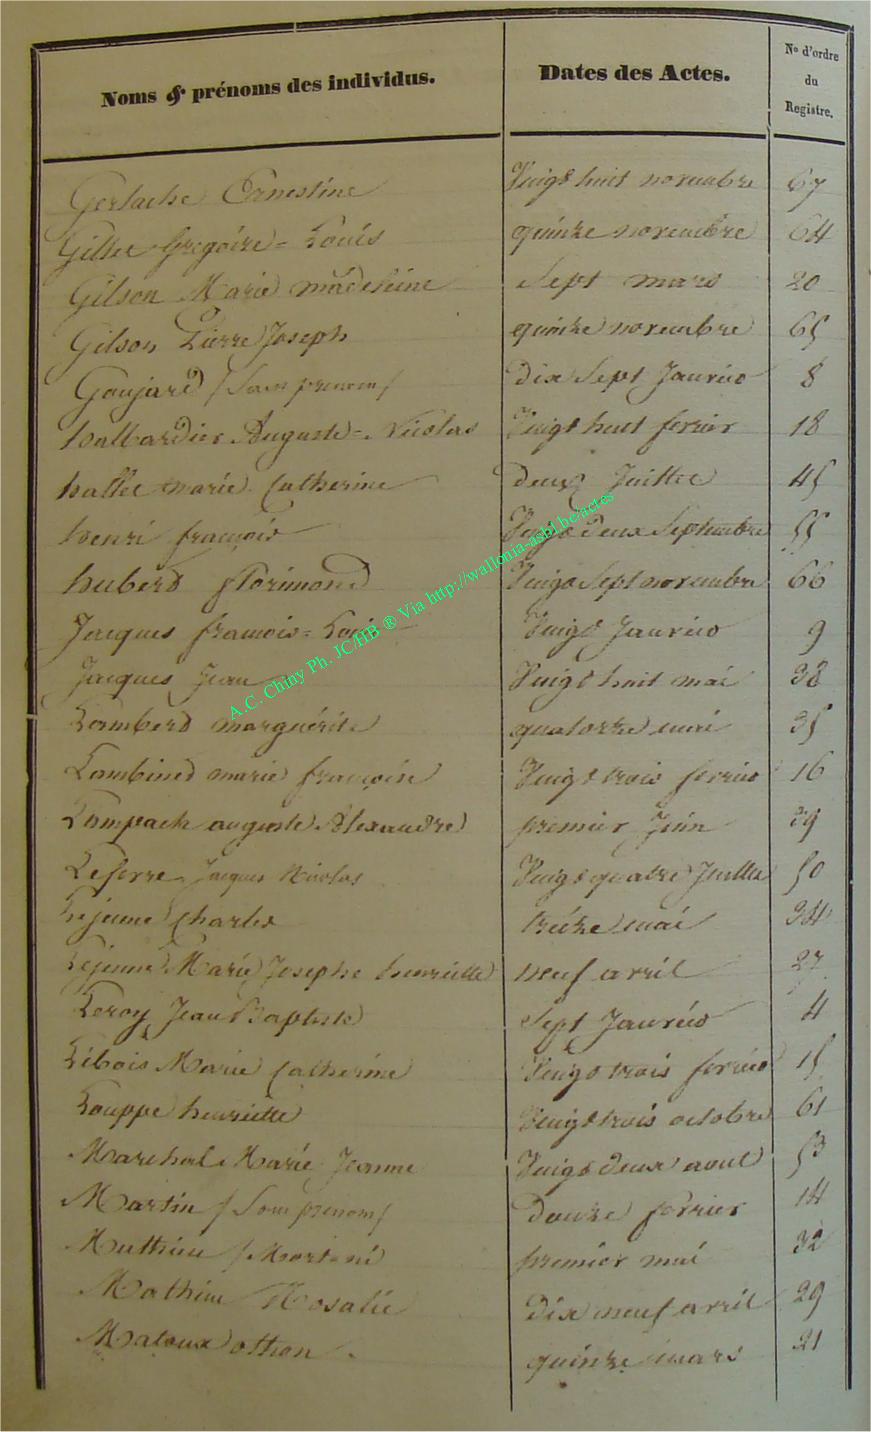 Noms & prénoms des individus. Dates des Actes. N° d'ordre du Registre.
Gerlache Ernestine Vingt huit novembre 67
Gillet Grégoire = Louis quinze novembre 64
Gilson Marie madeleine Sept mars 20
Gilson Pierre Joseph quinze novembre 65
Goujard / Sans prenom / dix Sept Janvier 8
halbardier Auguste = Nicolas Vingt huit fevrier 18
hallet marie Catherine deux Juillet 45
henri françois Vingt deux Septembre 55
huberd florimond Vingt Sept novembre 66
Jacques françois = Louis Vingt Janvier 9
Jacques Jean Vingt huit mai 38
Lamberd marguérite quatorze mai 35
Lambined marie françoise Vingt trois fevrier 16
Lampach auguste Alexandre premier Juin 39
Lefevre Jacques Nicolas Vingt quatre Juillet 50
Lejeune Charles treize mai 34
Lejeune Marie Josephe henriette neuf avril 27
Leroy Jean Baptiste Sept Janvier 4
Libois Marie Catherine Vingt trois fevrier 15
Louppe henriette Vingt trois octobre 61
Marchal Marie Jeanne Vingt deux aout 53
Martin / Sans prenom / douze fevrier 14
Mathieu / Mort né premier mai 32
Mathieu Rosalie dix neuf avril 29
Matoux othon . quinze mars 21
A.C. Chiny Ph. JC/HB ® Via http://wallonia-asbl.be/actes